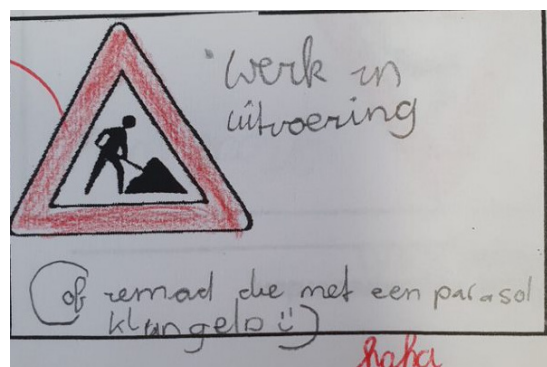 werk in
uitvoering
(of iemad die met een parasol
klungeld ü)
haha